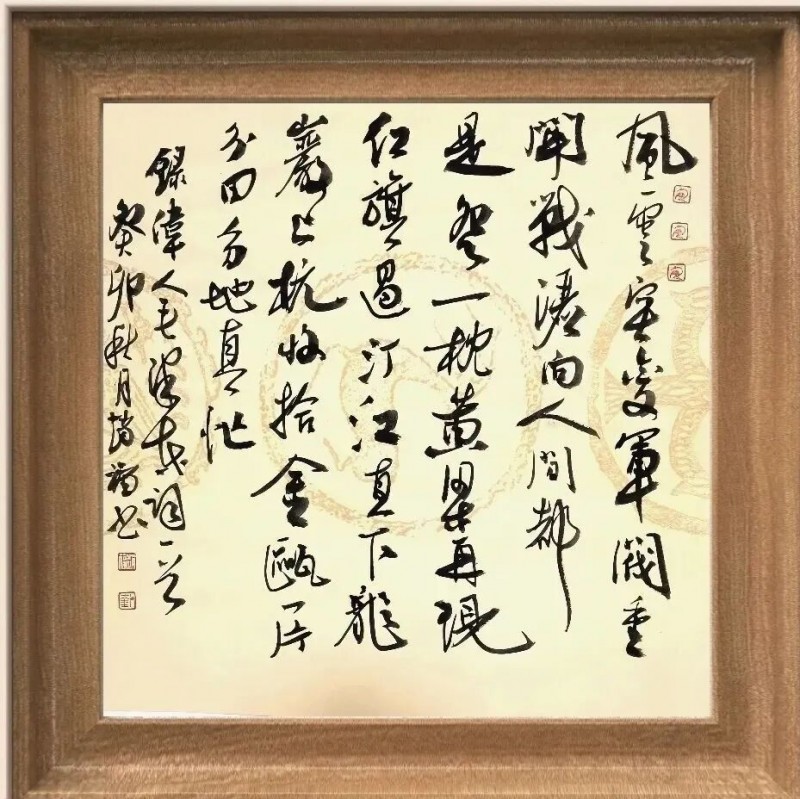 風雲突變軍閥重
開戰灑向人間都
是怨一枕黄粱再現
红旗過汀江直下龍
巖上杭收拾金甌一片
分田分地真忙
錄偉人毛澤東詞一首
癸卯秋月書